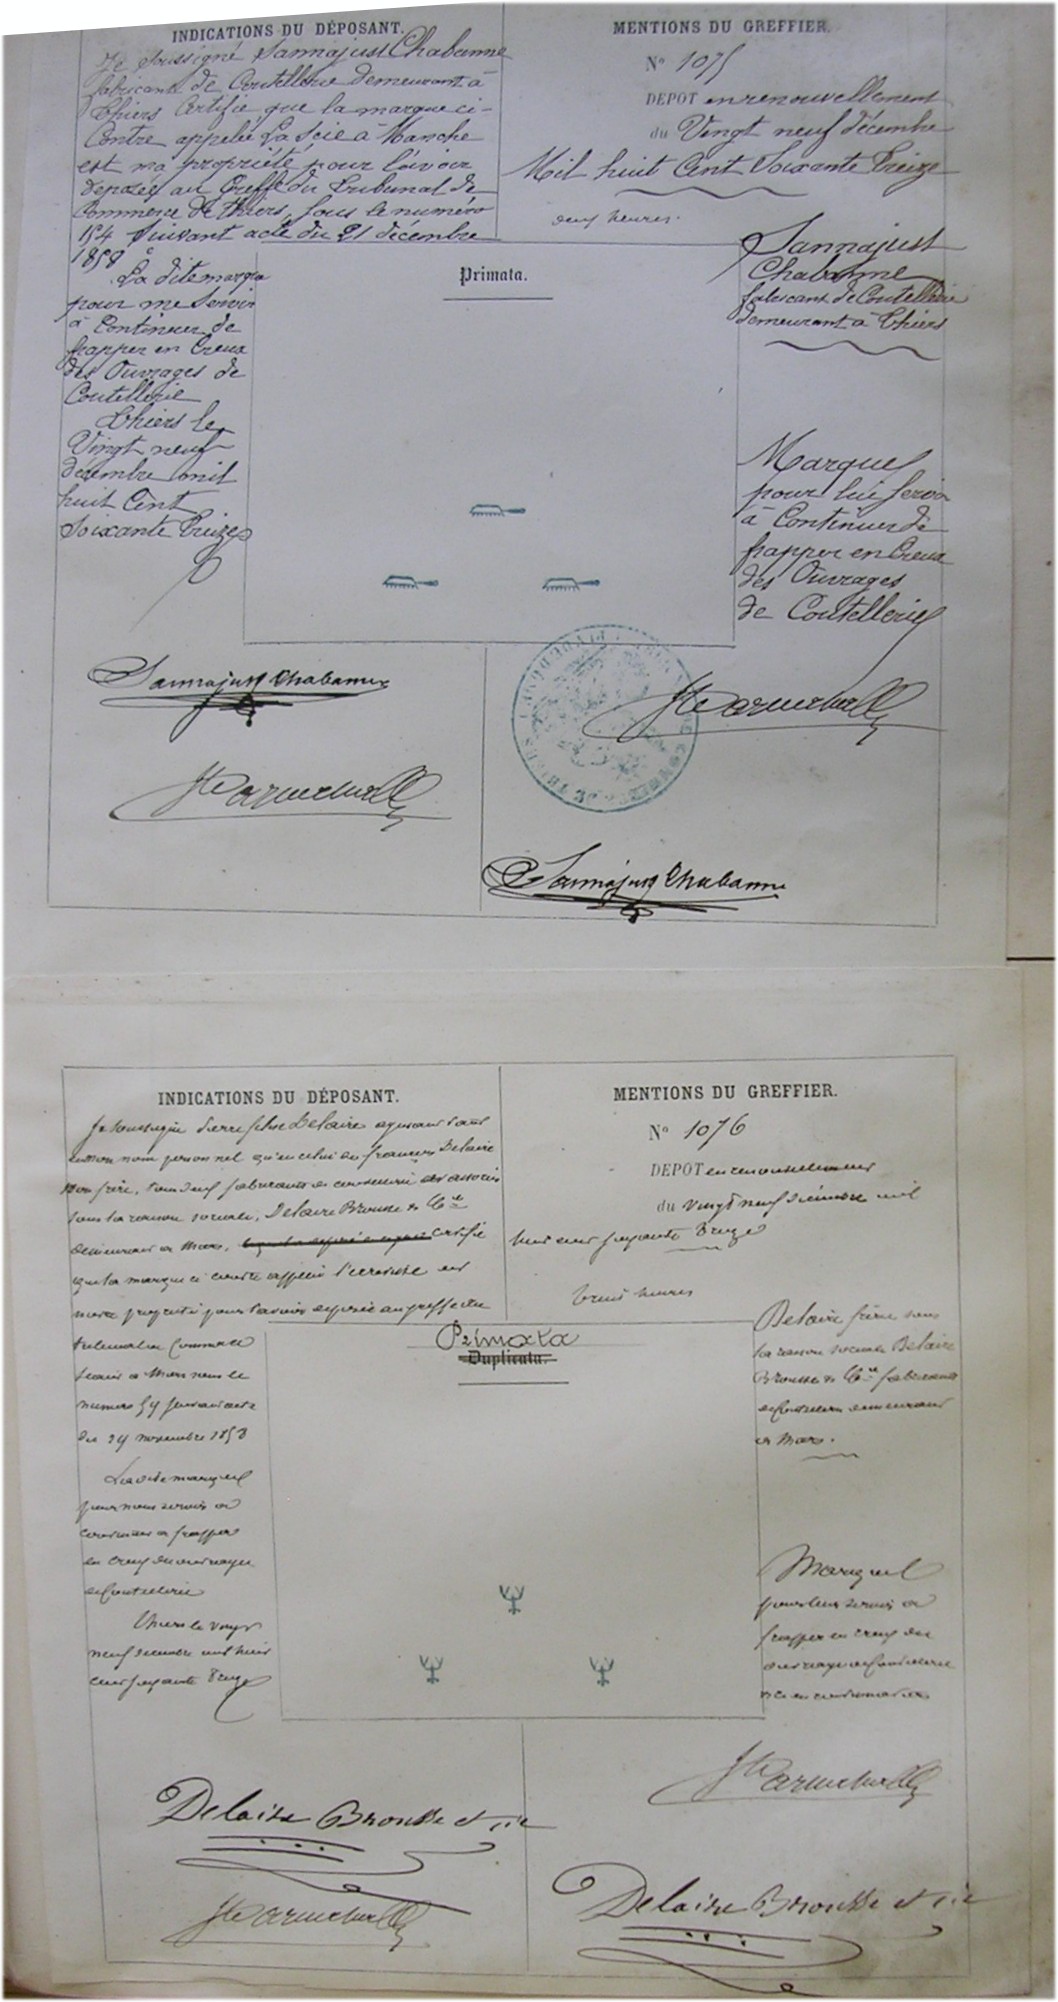 INDICATIONS DU DÉPOSANT.
Je Soussigné Sannajust Chabanne
fabricant de Coutellerie demeurant à
Thiers Certifie que la marque ci-
Contre appelée La Scie à Manche
est ma propriété pour l'avoir
déposée au Greffe du Tribunal de
Commerce de Thiers, Sous le numéro
154 Suivant acte du 21 décembre
1858
La dite marque
pour me Servir
à Continuer de
frapper en Creux
des Ouvrages de
Coutellerie
Thiers le
Vingt neuf
décembre mil
huit Cent
Soixante Treize
Sannajust Chabanne
MENTIONS DU GREFFIER.
N° 1075
DEPOT en renouvellement
du Vingt neuf décembre
Mil huit Cent Soixante Treize
deux heures.
Primata.
Sannajust
Chabanne
fabricant de Coutellerie
demeurant à Thiers
Marque
pour lui Servir
à Continuer de
frapper en Creux
des Ouvrages
de Coutellerie
Sannajust Chabanne
INDICATIONS DU DÉPOSANT.
Je soussigné Pierre Delaire agissant tant
en mon nom personnel qu'en celui de françois Delaire
mon frère, tous deux fabricants de coutellerie associés
sous la raison sociale, Delaire Brousse & Cie
demeurant a certifie
que la marque ci contre appelée l'écrevisse est
notre propriété pour l'avoir déposée au greffe du
tribunal de Commerce
de Thiers sous le
numéro 59 suivant acte
du 24 novembre 1858
La dite marque
pour nous servir a
continuer a frapper
en creux des ouvrages
de Coutellerie
Thiers le vingt
neuf décembre mil huit
cent soixante Treize
Delaire Brousse et Cie
MENTIONS DU GREFFIER.
N° 1076
DEPOT en renouvellement
du vingt neuf décembre mil
huit cent soixante Treize
heures
Primata
Duplicata.
Delaire frères sous
la raison sociale Delaire
Brousse & Cie fabricants
de Coutellerie demeurant
Marque
pour leur servir a
frapper en creux des
ouvrages de Coutellerie
Delaire Brousse et Cie